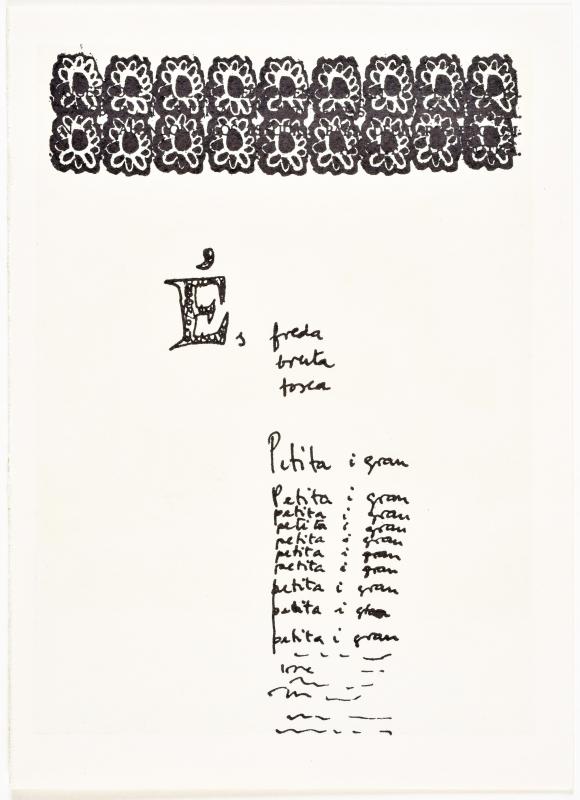 És freda
bruta
tosca
Petita i gran
Petita i gran
petita i gran
petita i gran
petita i gran
petita i gran
petita i gran
petita i gran
petita i gran
petita i gran